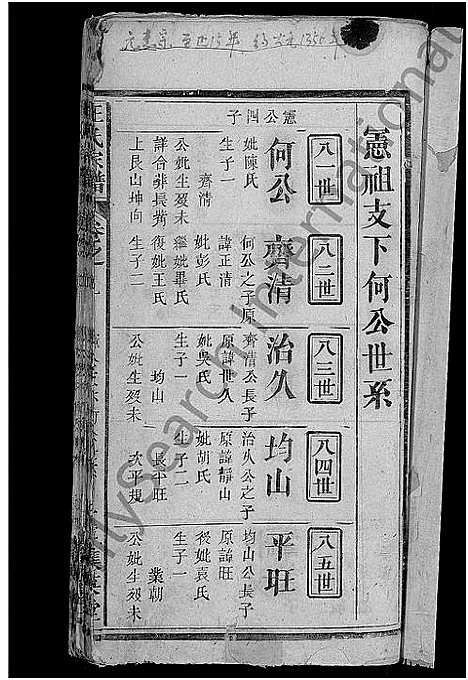 憲祖支下何公世系
八一世
憲公四子
何公
妣陳氏
生子一
齊清
公妣生歿未
詳合葬長崗
上艮山坤向
八二世
齊清
何公之子原
諱正清
妣彭氏
繼妣畢氏
復妣王氏
生子二
八三世
治久
齊清公長子
原諱世久
妣吳氏
生子一
均山
公妣生歿未
八四世
均山
治久公之子
原諱靜山
妣胡氏
生子二
長平旺
次平規
八五世
平旺
均山公長子
原諱旺
妣袁氏
生子一
業朝
公妣生歿未
汪氏家譜